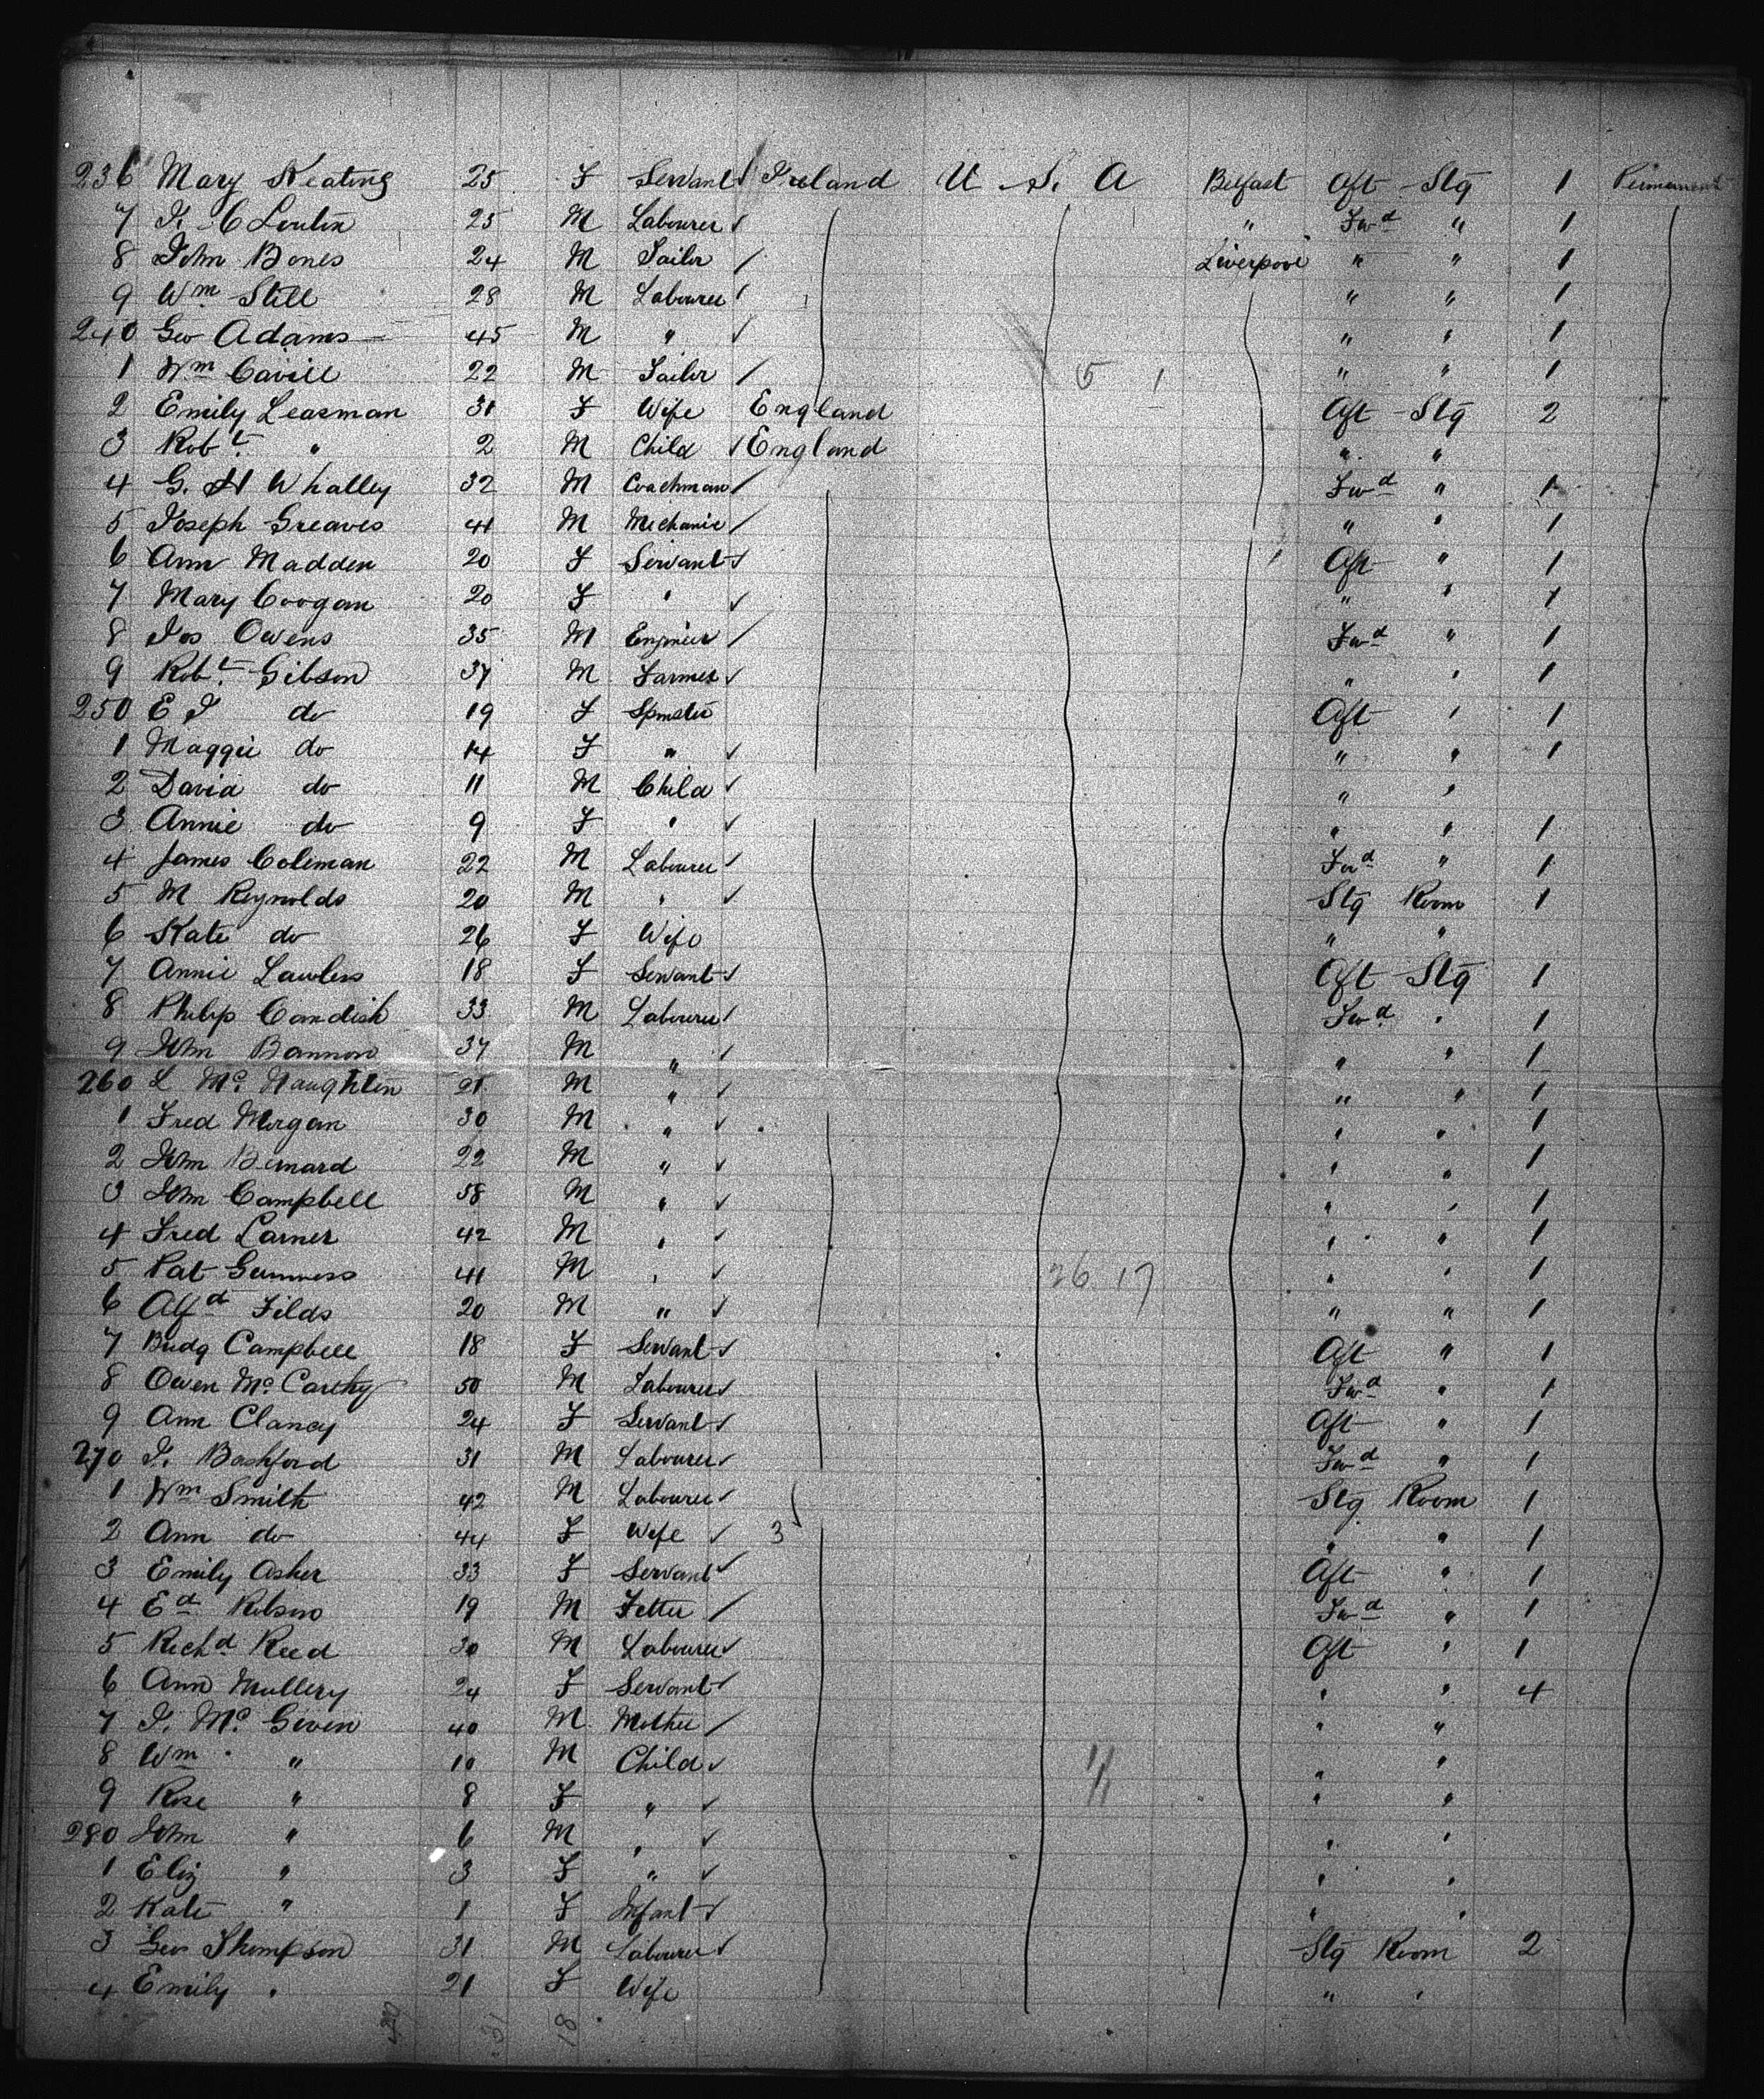 236 Mary Keating 25 F Servant Ireland U. S. A Belfast Aft Stg 1 Permanent
7 25 M Labourer " Fwd " 1
8 John Bones 24 M Tailor Liverpool " " 1
9 Wm Still 28 M Labourer " " 1
240 Geo Adams 45 M " " " 1
1 Wm Cavill 22 M Tailor 5 1 " " 1
2 Emily Leasman 31 F Wife England Aft Stg 2
3 Robt " 2 M Child England " "
4 G. H Whalley 32 M Coachman Fwd " 1
5 Joseph Greaves 41 M Mechanic " " 1
6 Ann Madden 20 F Servant Aft " 1
7 Mary Coogan 20 F " " " 1
8 Jos Owens 35 M Engineer Fwd " 1
9 Robt Gibson 37 M Farmer " " 1
250 E J do 19 F Spinster Aft " 1
1 Maggie do 14 F " " " 1
2 David do 11 M Child " "
3 Annie do 9 F " " " 1
4 James Coleman 22 M Labourer Fwd " 1
5 M Reynolds 20 M " Stg Room 1
6 Kate do 26 F Wife " "
7 Annie Lawless 18 F Servant Aft Stg 1
8 Philip Candish 33 M Labourer Fwd " 1
9 John Bannon 37 M " " " 1
260 L Mc Naughten 21 M " " " 1
1 Fred Morgan 30 M " " " 1
2 John Bernard 22 M " " " 1
3 John Campbell 58 M " " " 1
4 Fred Larner 42 M " " " 1
5 Pat 41 M " 26 17 " " 1
6 Alfd Filds 20 M " " " 1
7 Bridg Campbell 18 F Servant Aft " 1
8 Owen Mc Carthy 50 M Labourer Fwd " 1
9 Ann Clancy 24 F Servant Aft " 1
270 J. Bashford 31 M Labourer Fwd " 1
1 Wm Smith 42 M Labourer Stg Room 1
2 Ann do 44 F Wife 3 " " 1
3 Emily Asher 33 F Servant Aft " 1
4 Ed Robson 19 M Fitter Fwd " 1
5 Richd Reed 30 M Labourer Aft " 1
6 Ann Mullery 24 F Servant " " 4
7 J. Mc Given 40 M Mother " "
8 Wm " 10 M Child " "
9 Rose " 8 F " " "
280 John " 6 M " " "
1 Eliz " 3 F " " "
2 Kate " 1 F Infant " "
3 Geo Thompson 31 M Labourer Stg Room 2
4 Emily " 21 F Wife " "
31 18